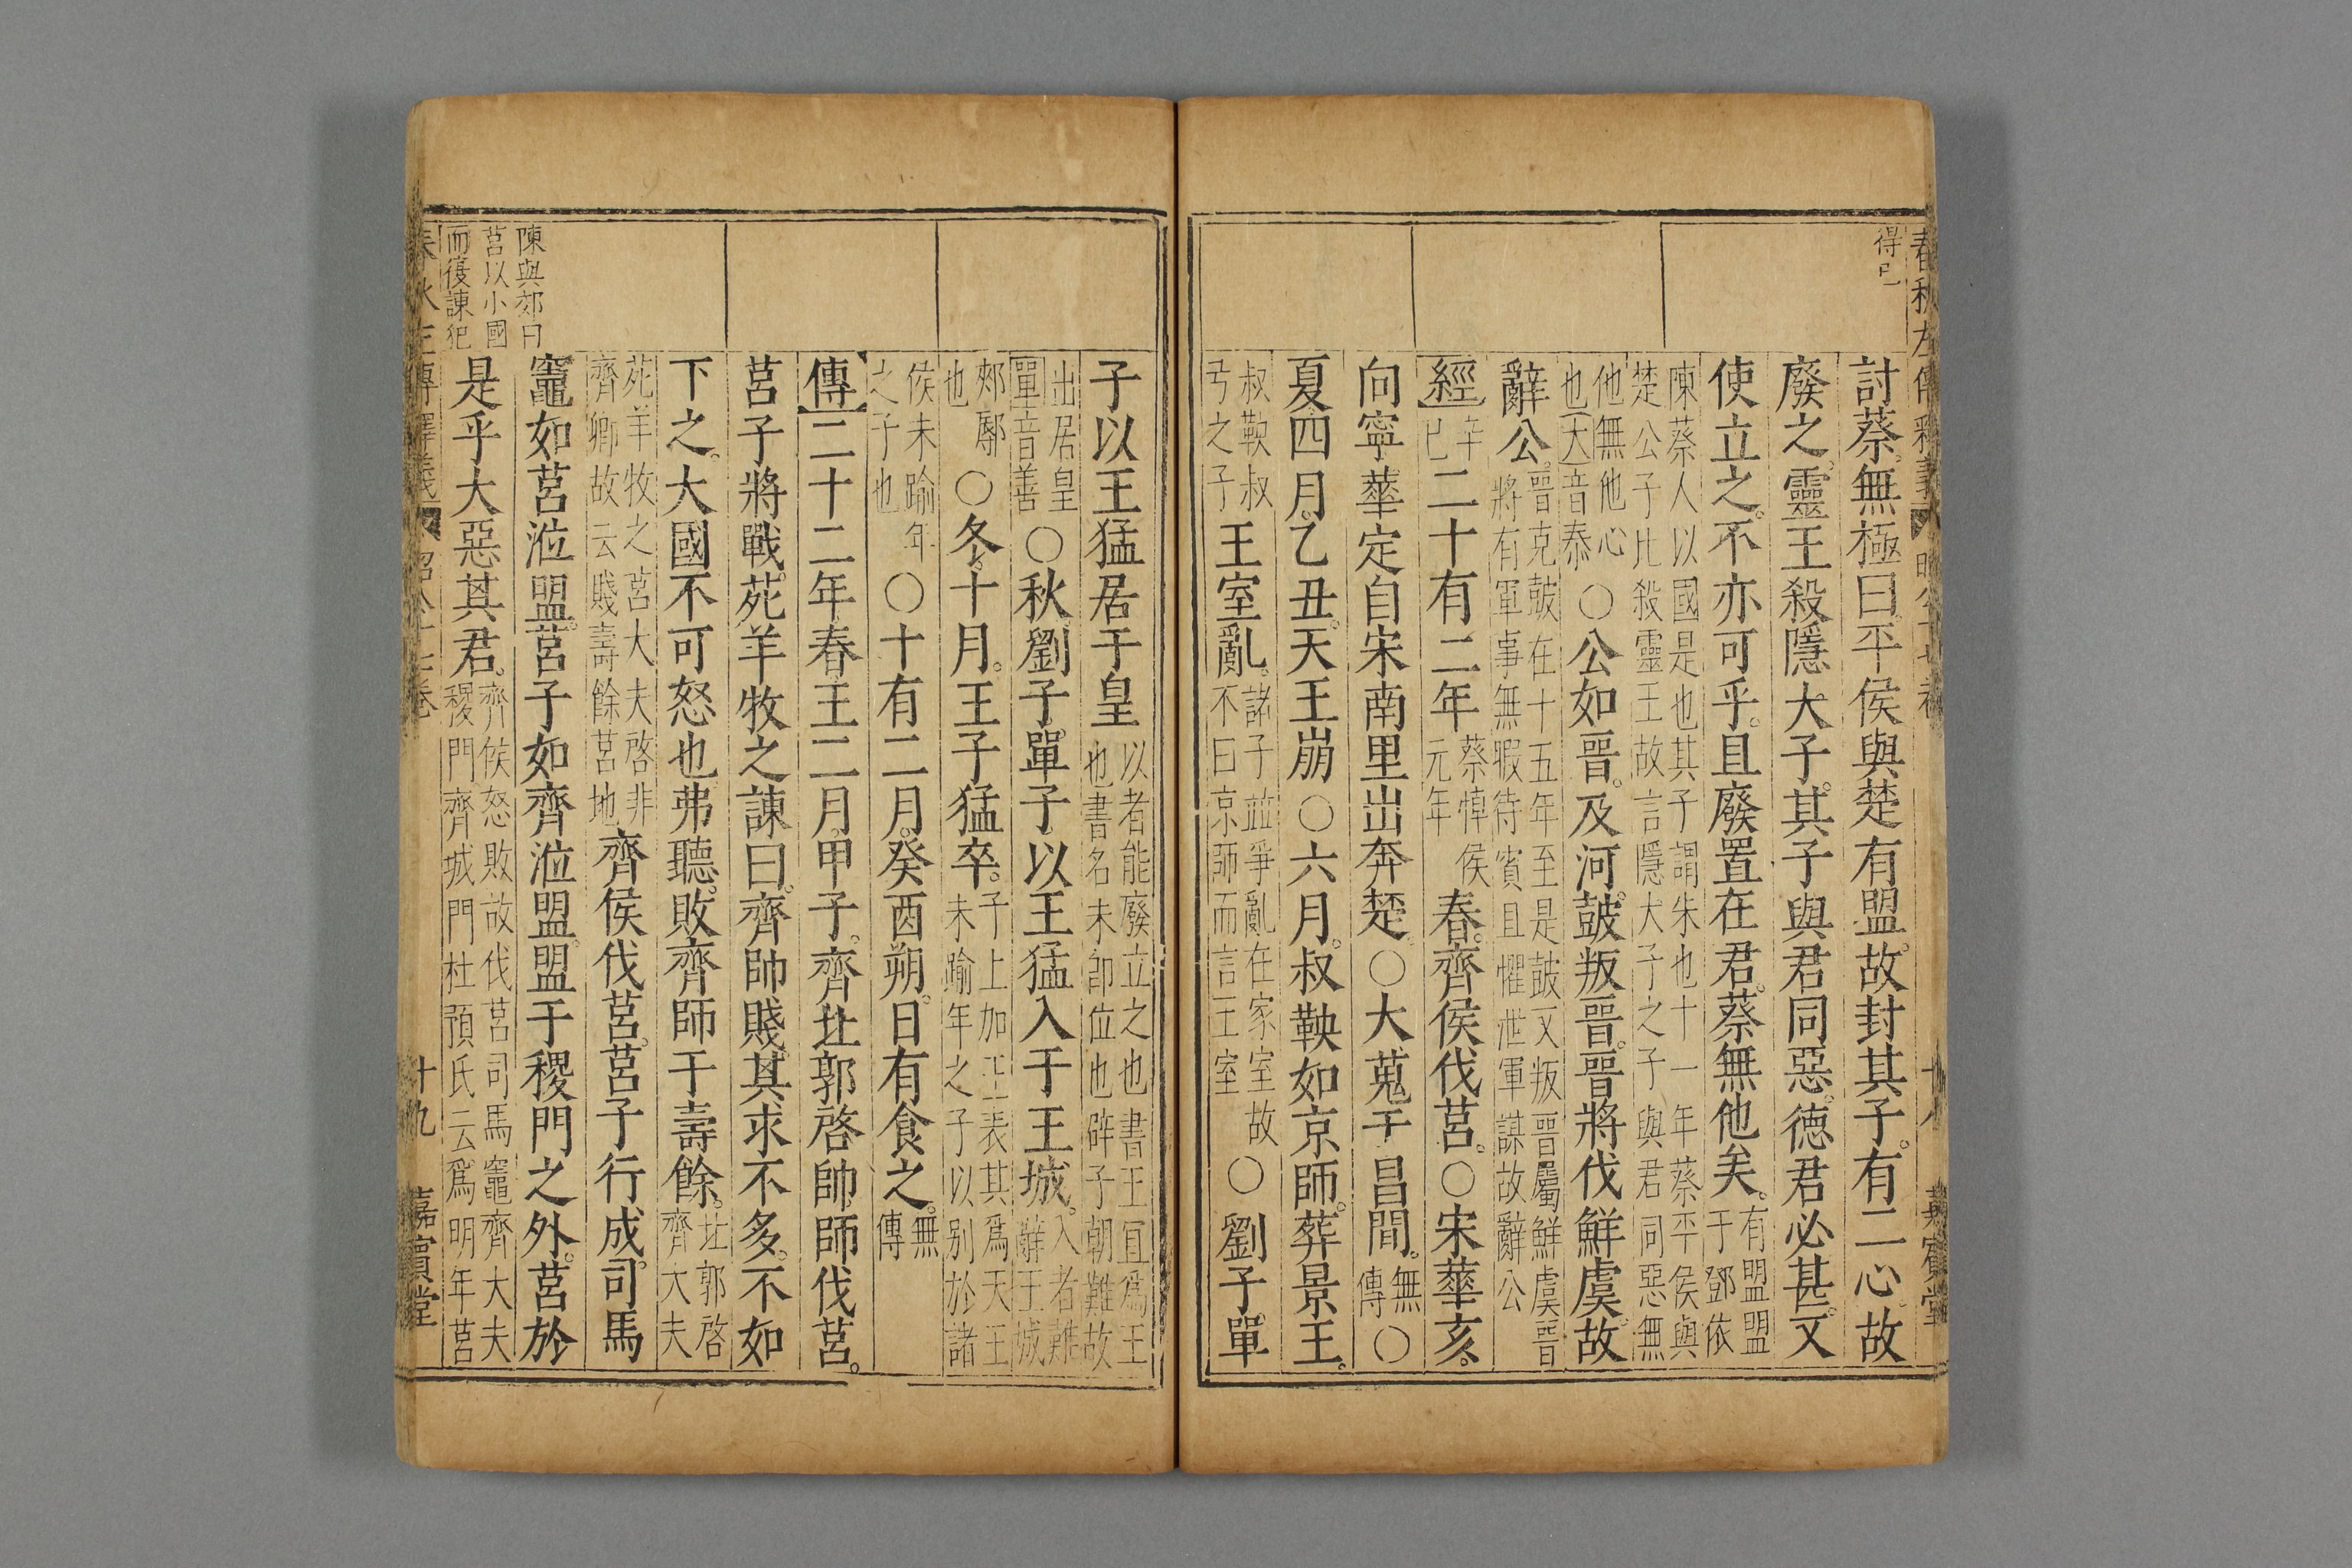 春秋左傳釋義 昭公十七卷 十八 嘉賓堂
得已
討蔡無極曰平侯與楚有盟故封其子有二心故
廢之靈王殺隱大子其子與君同惡德君必甚又
使立之不亦可乎且廢置在君蔡無他矣有盟盟于鄧依
陳蔡人以國是也其子謂朱也十一年蔡平侯與
楚公子比殺靈王故言隱大子之子與君同惡無
他無他心也大音泰○公如晉及河鼓叛晉晉將伐鮮虞故
辭公晉克鼓在十五年至是鼓又叛晉屬鮮虞晉將有軍事無暇待賓且懼泄軍謀故辭公
經辛巳二十有二年蔡悼侯元年春齊侯伐莒○宋華亥
向寧華定自宋南里出奔楚○大蒐于昌間無傳○
夏四月乙丑天王崩○六月叔鞅如京師葬景王
叔鞅叔弓之子王室亂諸子並爭亂在家室故不曰京師而言王室○劉子單
子以王猛居于皇以者能廢立之也書王宜爲王也書名未卽位也辟子朝難故
出居皇單音善○秋劉子單子以王猛入于王城入者難辭王城
郟鄏也○冬十月王子猛卒子上加王表其爲天王未踰年之子以別於諸
侯未踰年之子也○十有二月癸酉朔日有食之無傳
傳二十二年春王二月甲子齊北郭啓帥師伐莒
莒子將戰苑羊牧之諫曰齊帥賤其求不多不如
下之大國不可怒也弗聽敗齊師于壽餘北郭啓齊大夫
苑羊牧之莒大夫啓非齊卿故云賤壽餘莒地齊侯伐莒莒子行成司馬
竈如莒涖盟莒子如齊涖盟盟于稷門之外莒於
是乎大惡其君齊侯怒敗故伐莒司馬竈齊大夫稷門齊城門杜預氏云爲明年莒
陳與郊曰
莒以小國
而復諫犯
春秋左傳釋義 昭公十七卷 十九 嘉賓堂